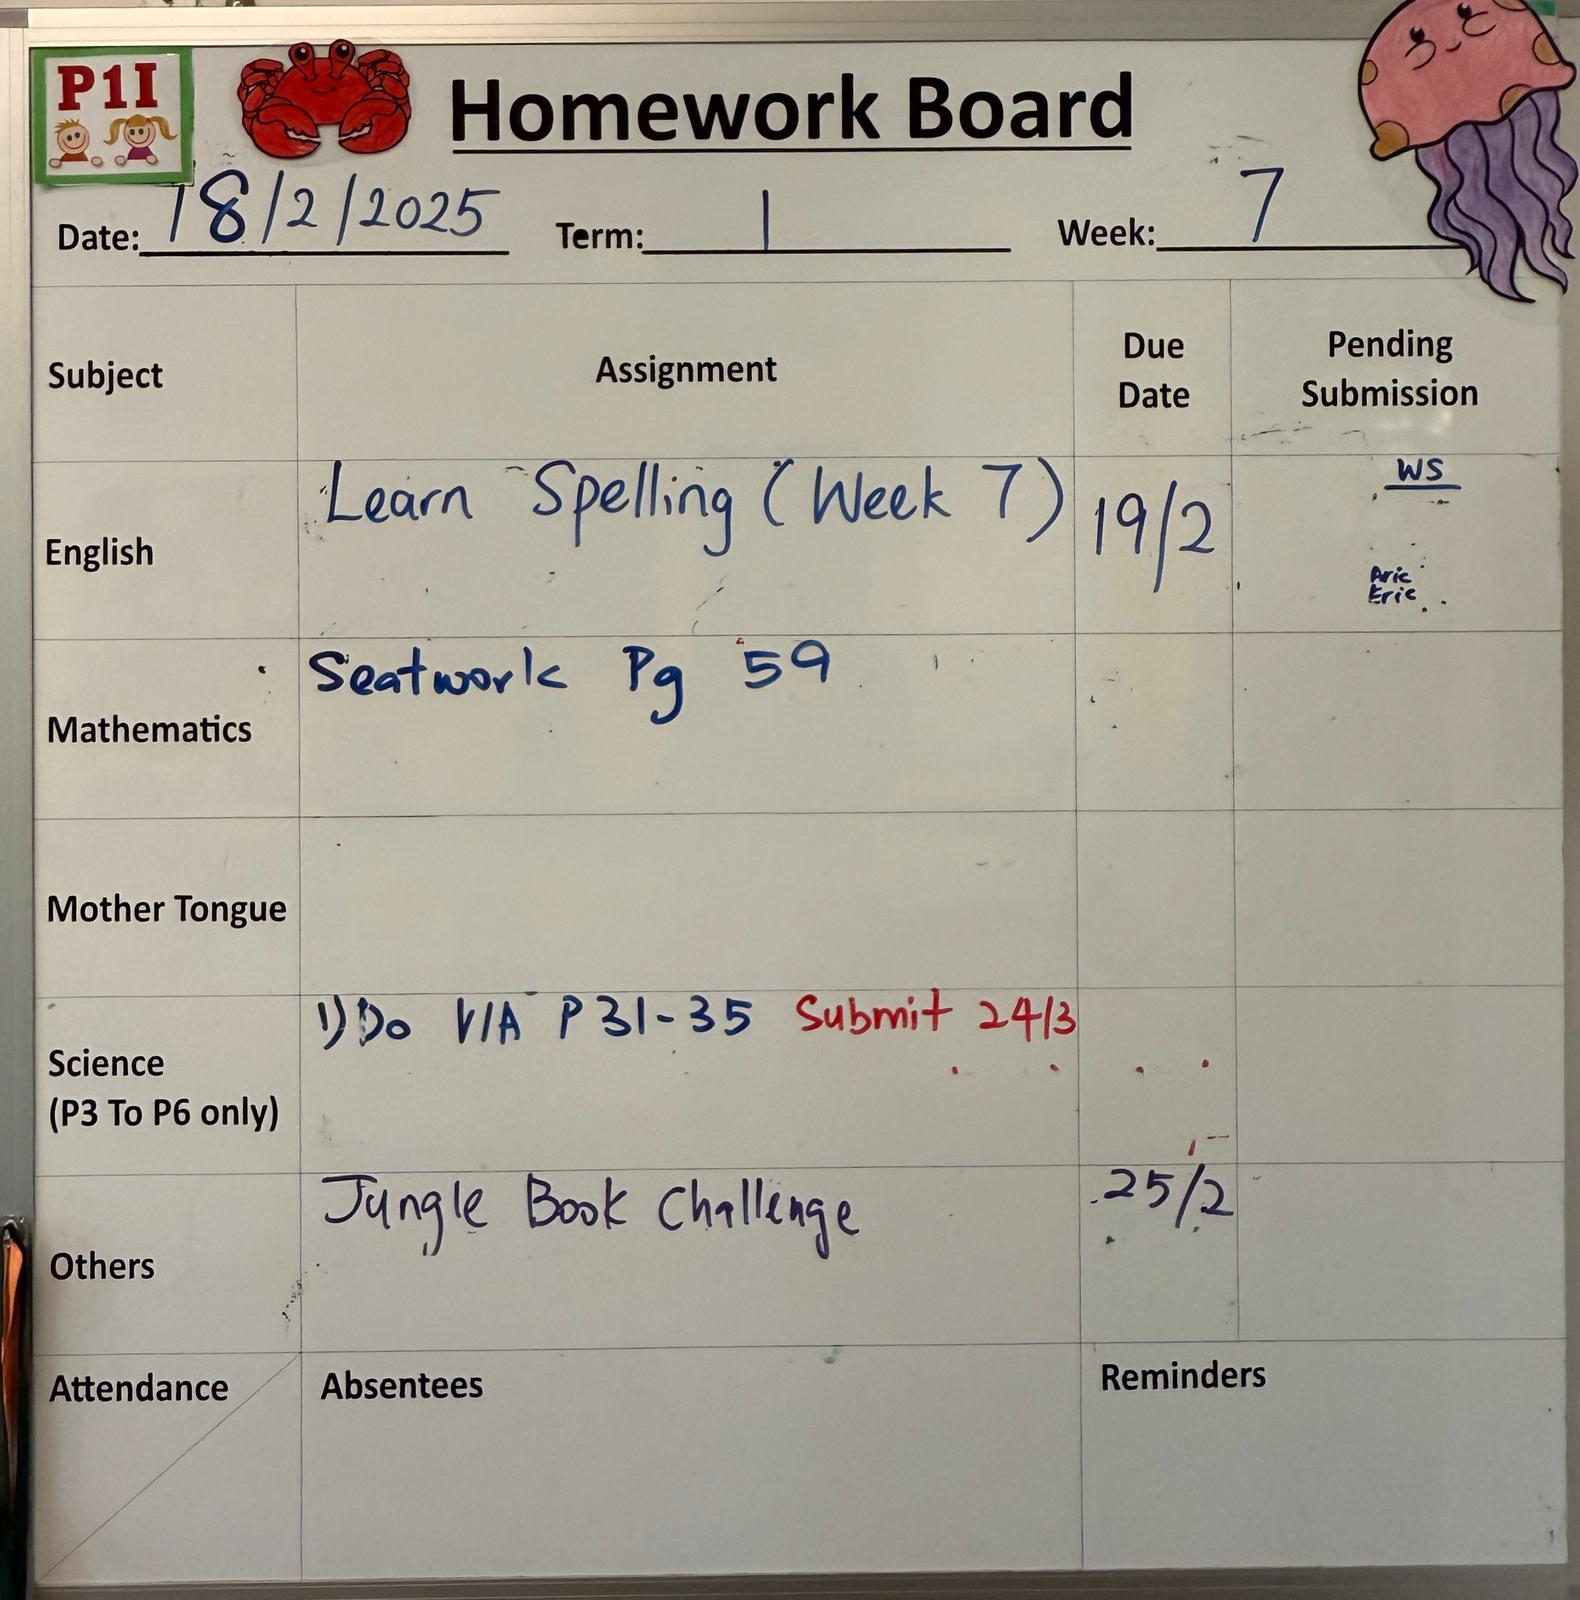 P1I
Homework Board
Date: 18/2/2025 Term: 1 Week: 7
Subject Assignment Due Date Pending Submission
English Learn Spelling (Week 7) 19/2 WS
Aric
Eric
Mathematics Seatwork Pg 59
Mother Tongue
Science (P3 To P6 only) 1) Do V/A P 31-35 Submit 24/3
Others Jungle Book Challenge 25/2
Attendance Absentees Reminders